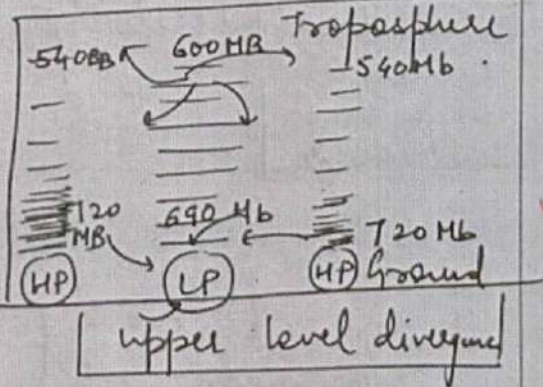 Troposphere
540BB 600MB 540Mb.
720 MB 690 Mb 720 Mb
HP LP HP Ground
upper level divergend